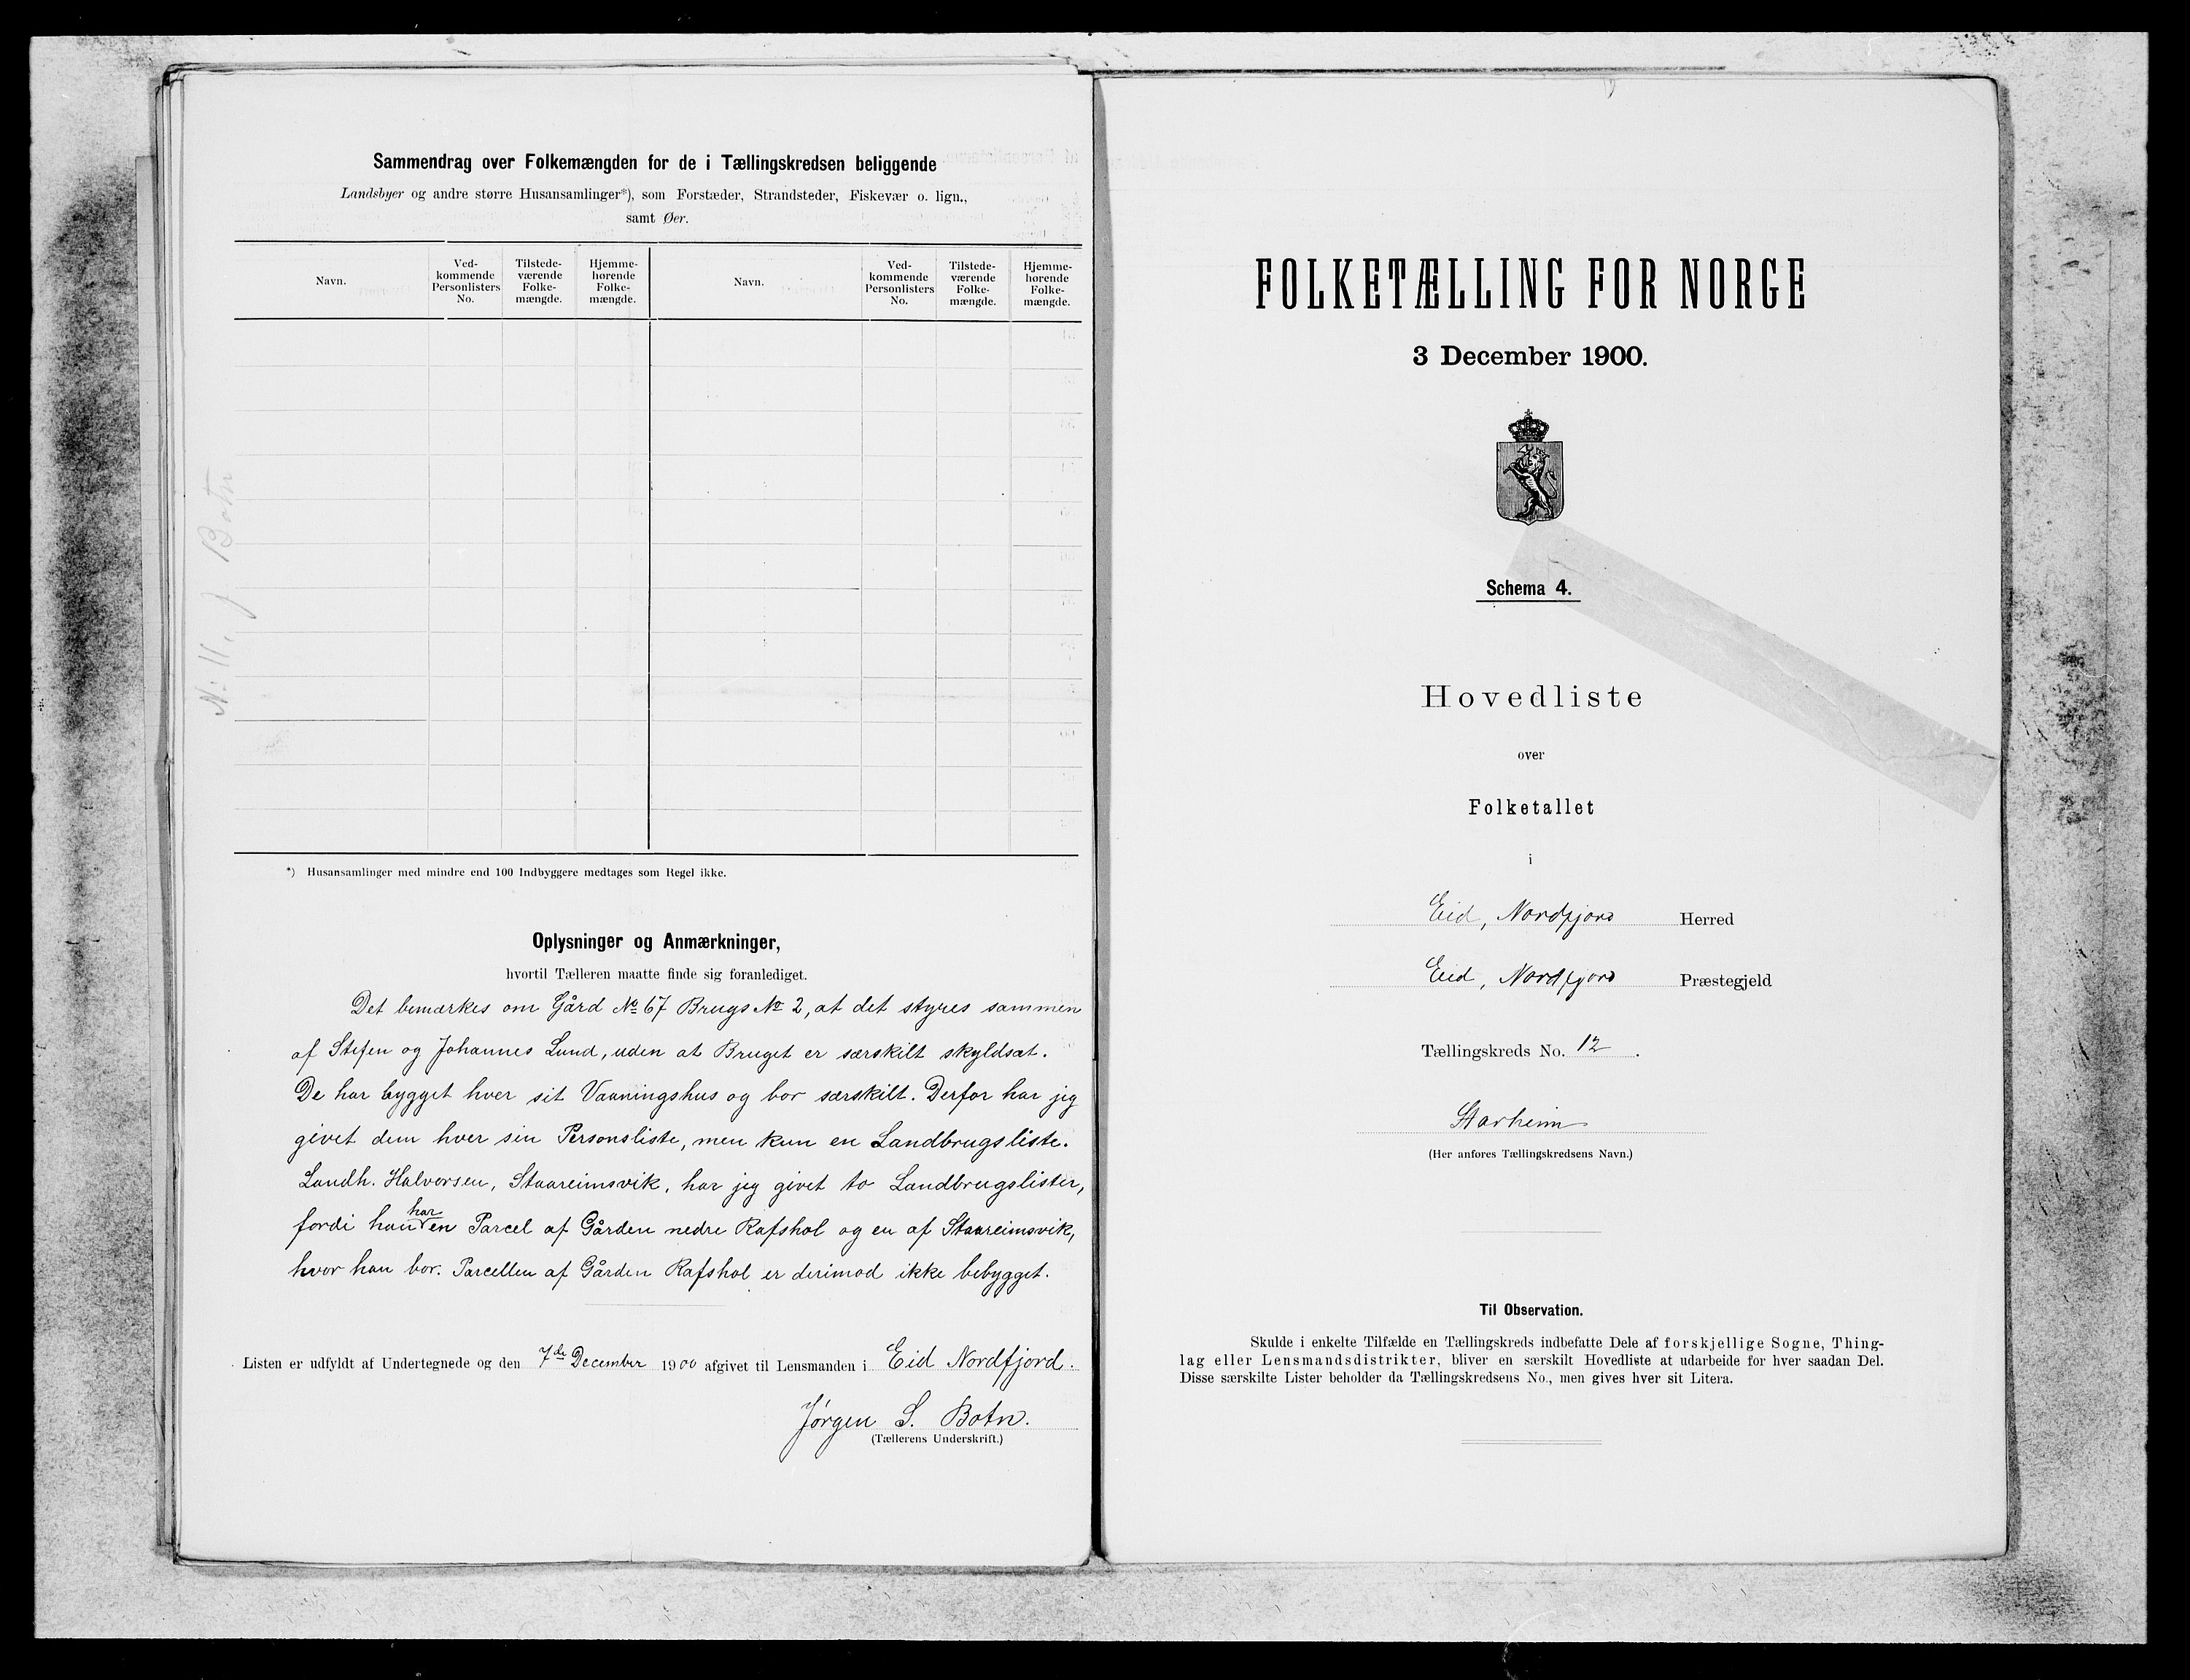 Sammendrag over Folkemængden for de i Tællingskredsen beliggende
Landsbyer og andre større Husansamlinger*), som Forstæder, Strandsteder, Fiskevær o. lign.,
samt Øer.
Navn.
Ved-
kommende
Personlisters
No.
Tilstede-
værende
Folke-
mængde.
Hjemme-
hørende
Folke-
mængde.
Navn.
Ved-
kommende
Personlisters
No.
Tilstede-
værende
Folke-
mængde.
Hjemme-
hørende
Folke-
mængde.
N: 11, J Botn
*) Husansamlinger med mindre end 100 Indbyggere medtages som Regel ikke.
Oplysninger og Anmærkninger,
hvortil Tælleren maatte finde sig foranlediget.
Det bemærkes om Gård No 67 Brugs No 2, at det styres sammen
af Stefen og Johannes Lund, uden at Bruget er særskilt skyldsat.
De har bygget hver sit Vaaningshus og bor særskilt. Derfor har jeg
givet dem hver sin Personsliste, men kun en Landbrugsliste.
Landh. Halvorsen, Staareimsvik, har jeg givet to Landbrugslister,
fordi han har en Parcel af Gården nedre Rafshol og en af Staareimsvik,
hvor han bor. Parcellen af Gården Rafshol er derimod ikke bebygget.
Listen er udfyldt af Undertegnede og den 7de December 1900 afgivet til Lensmanden i Eid Nordfjord.
Jørgen S. Botn.
(Tællerens Underskrift.)
FOLKETÆLLING FOR NORGE
3 December 1900.
Schema 4.
Hovedliste
over
Folketallet
i
Eid, Nordfjord Herred
Eid, Nordfjord Præstegjeld
Tællingskreds No. 12.
Starheim
(Her anføres Tællingskredsens Navn.)
Til Observation.
Skulde i enkelte Tilfælde en Tællingskreds indbefatte Dele af forskjellige Sogne, Thing-
lag eller Lensmandsdistrikter, bliver en særskilt Hovedliste at udarbeide for hver saadan Del.
Disse særskilte Lister beholder da Tællingskredsens No., men gives hver sit Litera.